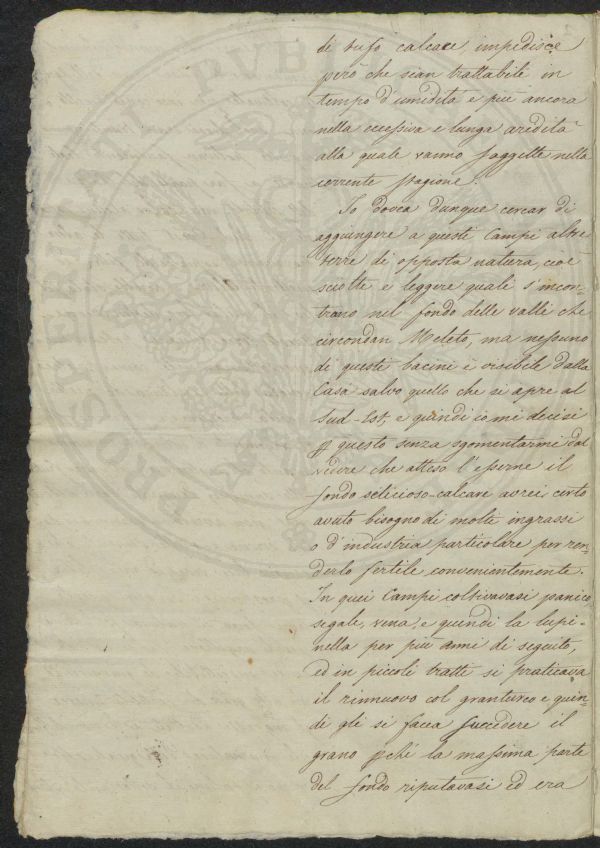 di tufo calcare impedisce
però che sian trattabili in
tempo d'umidità e più ancora
nella eccessiva e lunga aridità
alla quale vanno soggette nella
corrente stagione.
Io dovea dunque cercar di
aggiungere a questi Campi altre
terre di opposta natura, cioè
sciolte e leggere quali s'incon-
trano nel fondo delle valli che
circondan Meleto, ma nessuno
di questi bacini è visibile dalla
Casa salvo quello che si apre al
Sud-Est, e quindi io mi decisi
p questo senza sgomentarmi dal
vedere che atteso l'esserne il
fondo selicioso-calcare avrei certo
avuto bisogno di molti ingrassi
o d'industria particolare per ren-
derlo fertile convenientemente.
In quei Campi coltivavasi panico,
segale, vena, e quindi la lupi-
nella per più anni di seguito,
ed in piccoli tratti si praticava
il rinnuovo col granturco e quin-
di gli si facea succedere il
grano pché la massima parte
del fondo riputavasi ed era
PROSPERITATI PUBL